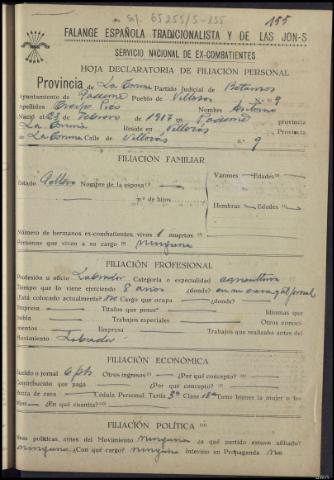 155
FALANGE ESPAÑOLA TRADICIONALISTA Y DE LAS JON-S
SERVICIO NACIONAL DE EX-COMBATIENTES
HOJA DECLARATORIA DE FILIACIÓN PERSONAL
Provincia de La Coruña Partido Judicial de Betanzos
Ayuntamiento de Paderne Pueblo de Villozás
Apellidos Crespo Nombre Antonio
Nació el 23 de Febrero de 1917 en Paderne provincia
La Coruña Reside en Villozás Provincia
La Coruña Calle de Villozás n.º 9
FILIACIÓN FAMILIAR
Estado Soltero Nombre de la esposa
n.º de hijos
Varones Edades
Hembras Edades
Número de hermanos ex-combatientes, vivos 1 muertos
Personas que viven a su cargo ninguna
FILIACIÓN PROFESIONAL
Profesión u oficio Labrador Categoría o especialidad agricultura
Tiempo que lo viene ejerciendo 8 años ¿donde? en su casa
Está colocado actualmente? Cargo que ocupa ¿donde?
Empresa Títulos que posee Idiomas que
habla Trabajos especiales Otros conoci-
mientos Empresa Trabajos que realizaba antes del
Movimiento Labrador
FILIACIÓN ECONÓMICA
Sueldo o jornal 6 pts Otros ingresos ¿Por qué concepto?
Contribución que paga ¿Por qué concepto?
Renta de casa Cédula Personal Tarifa 3ª Clase Tiene bienes la mujer o los
hijos ¿En qué cuantía?
FILIACIÓN POLÍTICA
Ideas políticas, antes del Movimiento ninguna ¿a qué partido estuvo afiliado?
ninguno ¿Con qué cargo? ninguno Intervino en Propaganda No